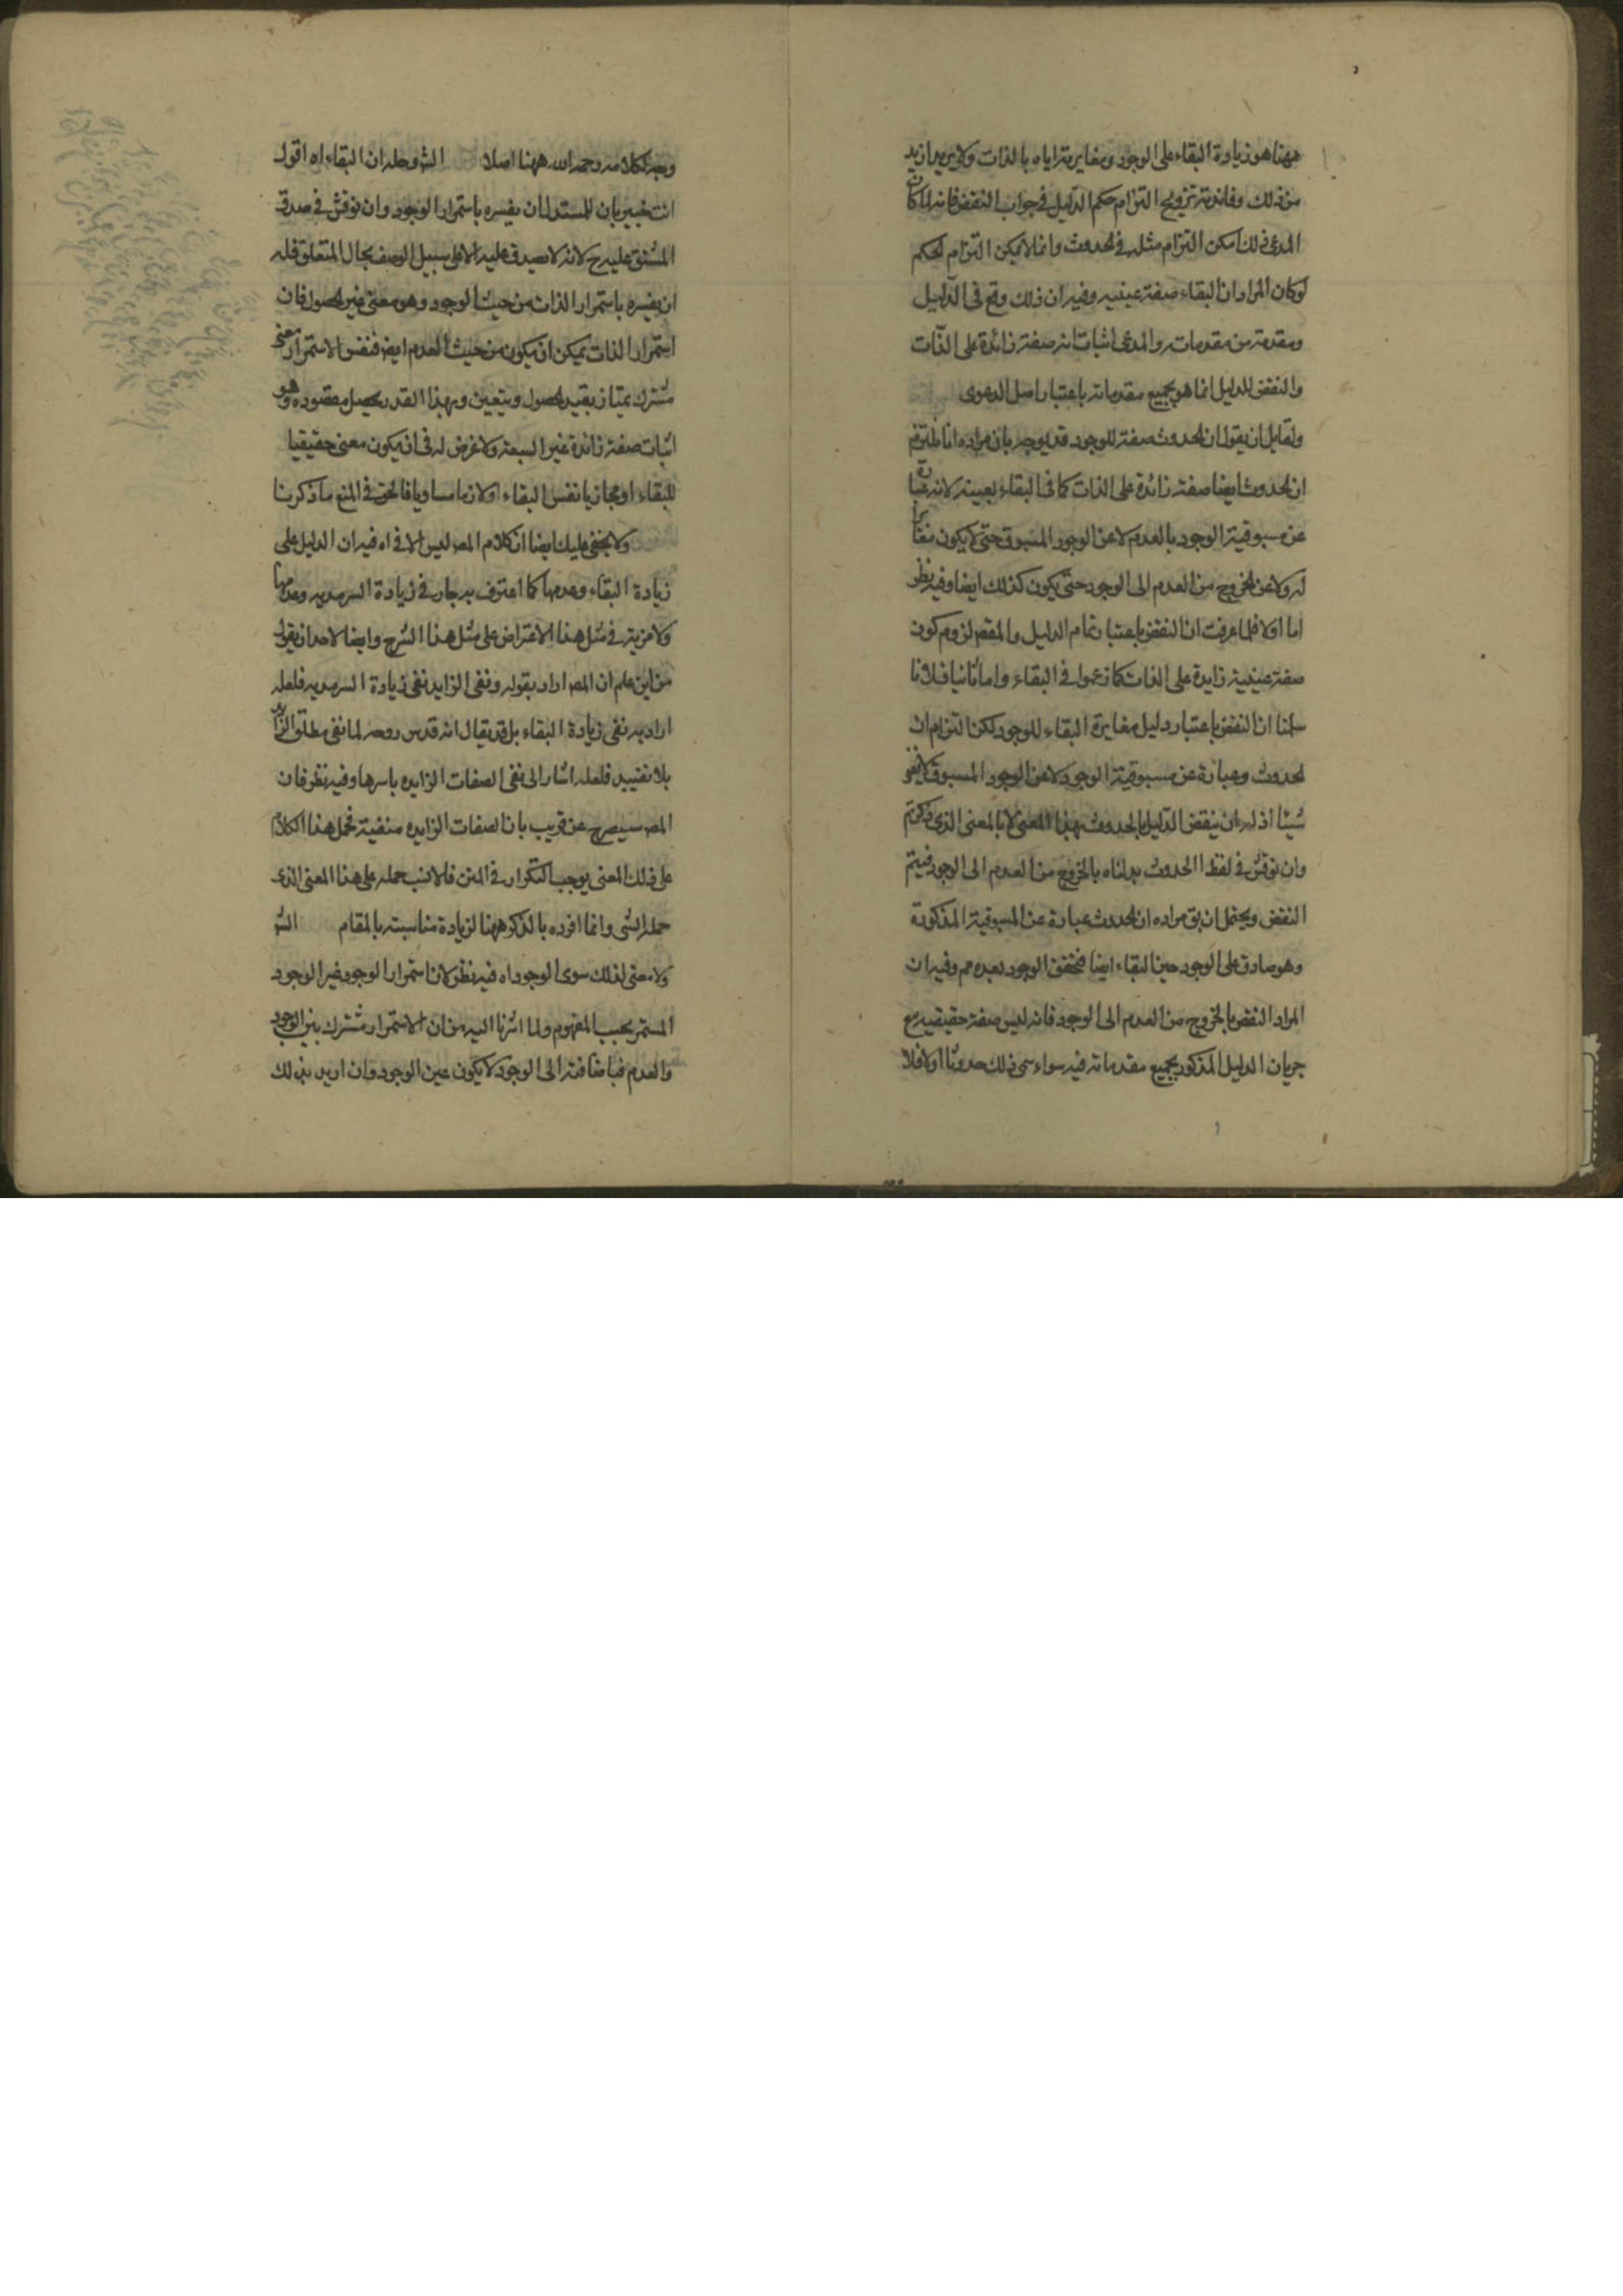 ههنا هو زيادة البقاء على الوجود ومغايرته اياه بالذات ولا يريد ازيد
من ذلك وفائدته ترويج التزام حكم الدليل في جواب النقض فانه لما كان
المدعى ذلك امكن التزام مثله في الحدوث وانما لا يمكن التزام الحكم
لو كان المراد ان البقاء صفة عينية وفيه ان ذلك وقع في الدليل
ومقدمة من مقدماته والمدعى اثبات انه صفة زائدة على الذات
والنقض للدليل انما هو بجميع مقدماته باعتبار اصل الدعوى
ولقايل ان يقول ان الحدوث صفة للوجود قد يوجه بان مراده انا نلتزم
ان الحدوث ايضا صفة زائدة على الذات كما في البقاء بعينه لانه عبارة
عن مسبوقية الوجود بالعدم لا عن الوجود المسبوق حتى لا يكون مغايرا
له ولا عن الخروج من العدم الى الوجود حتى يكون كذلك ايضا وفيه نظر
اما اولا فلما عرفت ان النقض باعتبار تمام الدليل والمقصود لزوم كون
صفة عينية زايدة على الذات كما زعموا في البقاء واما ثانيا فلانا
سلمنا ان النقض باعتبار دليل مغايرة البقاء للوجود لكن التزام ان
الحدوث عبارة عن مسبوقية الوجود لا عن الوجود المسبوق لا يضر
شيئا اذ له ان ينقض الدليل بالحدوث بهذا المعنى لا بالمعنى الذي ذكرتم
وان نوقش في لفظ الحدوث بدلناه بالخروج من العدم الى الوجود فيتم
النقض ويحتمل ان يق مراده ان الحدوث عبارة عن المسبوقية المذكورة
وهو صادق على الوجود حين البقاء ايضا فتحقق الوجود بعده مم وفيه ان
المراد النقض بالخروج من العدم الى الوجود فانه ليس صفة حقيقيه مع
جريان الدليل المذكور بجميع مقدماته فيه سواء سمى ذلك حدوثا اولا فلا
وجه لكلامه رحمه الله ههنا اصلا الشر وحله ان البقاء اه اقول
انت خبير بان للمستدل ان يفسره باستمرار الوجود وان نوقش في صدق
المشتق عليه ح لانه لا يصدق عليه الا على سبيل الوصف بحال المتعلق فله
ان يفسره باستمرار الذات من حيث الوجود وهو معنى غير الحصول فان
استمرار الذات يمكن ان يكون من حيث العدم ايض فنفس الاستمرار معنى
مشترك يمتاز بقيد الحصول ويتعين وبهذا القدر يحصل مقصوده وهو
اثبات صفة زائدة غير السبعة ولا غرض له في ان يكون معنى حقيقيا
للبقاء او مجازيا نفس البقاء او لازما مساويا فالحق في المنع ما ذكرنا
ولا يخفى عليك ايضا ان كلام المص ليس الا في اه فيه ان الدليل على
زيادة البقاء وعدمها كما اعترف به جار في زيادة السرمديه وعدمها
ولا مزية في مثل هذا الاعتراض على مثل هذا الشرح وايضا لاحد ان يقول
من اين علم ان المص اراد بقوله ونفى الزايد نفى زيادة السرمديه فلعله
اراد به نفى زيادة البقاء بل قد يقال انه قدس روحه لما نفى مطلق الزايد
بلا تقييد فلعله اشار الى نفى الصفات الزايده باسرها وفيه نظر فان
المص سيصرح عن قريب بان الصفات الزايده منفية فحمل هذا الكلام
على ذلك المعنى يوجب التكرار في المتن فالانسب حمله على هذا المعنى الذى
حمله الشى وانما افرده بالذكر ههنا لزيادة مناسبته بالمقام الشر
ولا معنى لذلك سوى الوجود اه فيه نظر لان استمرار الوجود غير الوجود
المستمر بحسب المفهوم ولما اشرنا اليه من ان الاستمرار مشترك بين الوجود
والعدم فباضافته الى الوجود لا يكون عين الوجود وان اريد بذلك